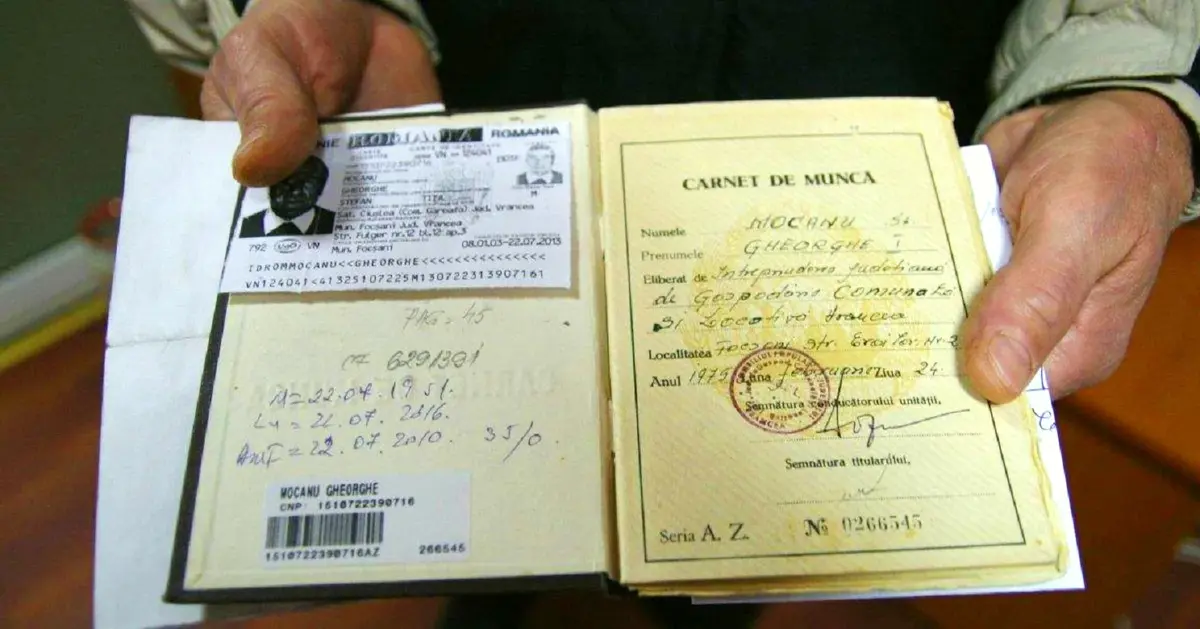 ROMANIA ROMANIA
CARTE DE IDENTITATE
SERIA VN NR 124041
MOCANU
GHEORGHE
STEFAN TITA
M
Sat. Clustea (Com. Garoafa) Jud. Vrancea
Mun. Focşani Jud. Vrancea
Str. Fulger nr.12 bl.12 ap.3
792 VN Mun. Focşani 08.01.03-22.07.2013
IDROMMOCANU<<GHEORGHE<<<<<<<<<<<<<<<
VN124041<4132510722SM130722313907161
PAG = 45
CF 6291391
22.07.1951.
22.07.2010. 35/0.
MOCANU GHEORGHE
CNP: 1510722390716
1510722390716AZ 266545
CARNET DE MUNCA
Numele MOCANU St
Prenumele GHEORGHE I
Eliberat de Intreprinderea Judeţeană
de Gospodărie Comunală
si Locativă Vrancea
Localitatea Focşani Str. Eroilor Nr. 2
Anul 1975 Luna februarie Ziua 24
CONSILIUL POPULAR
VRANCEA
Semnătura conducătorului unităţii,
Semnătura titularului,
Seria A. Z. № 0266545